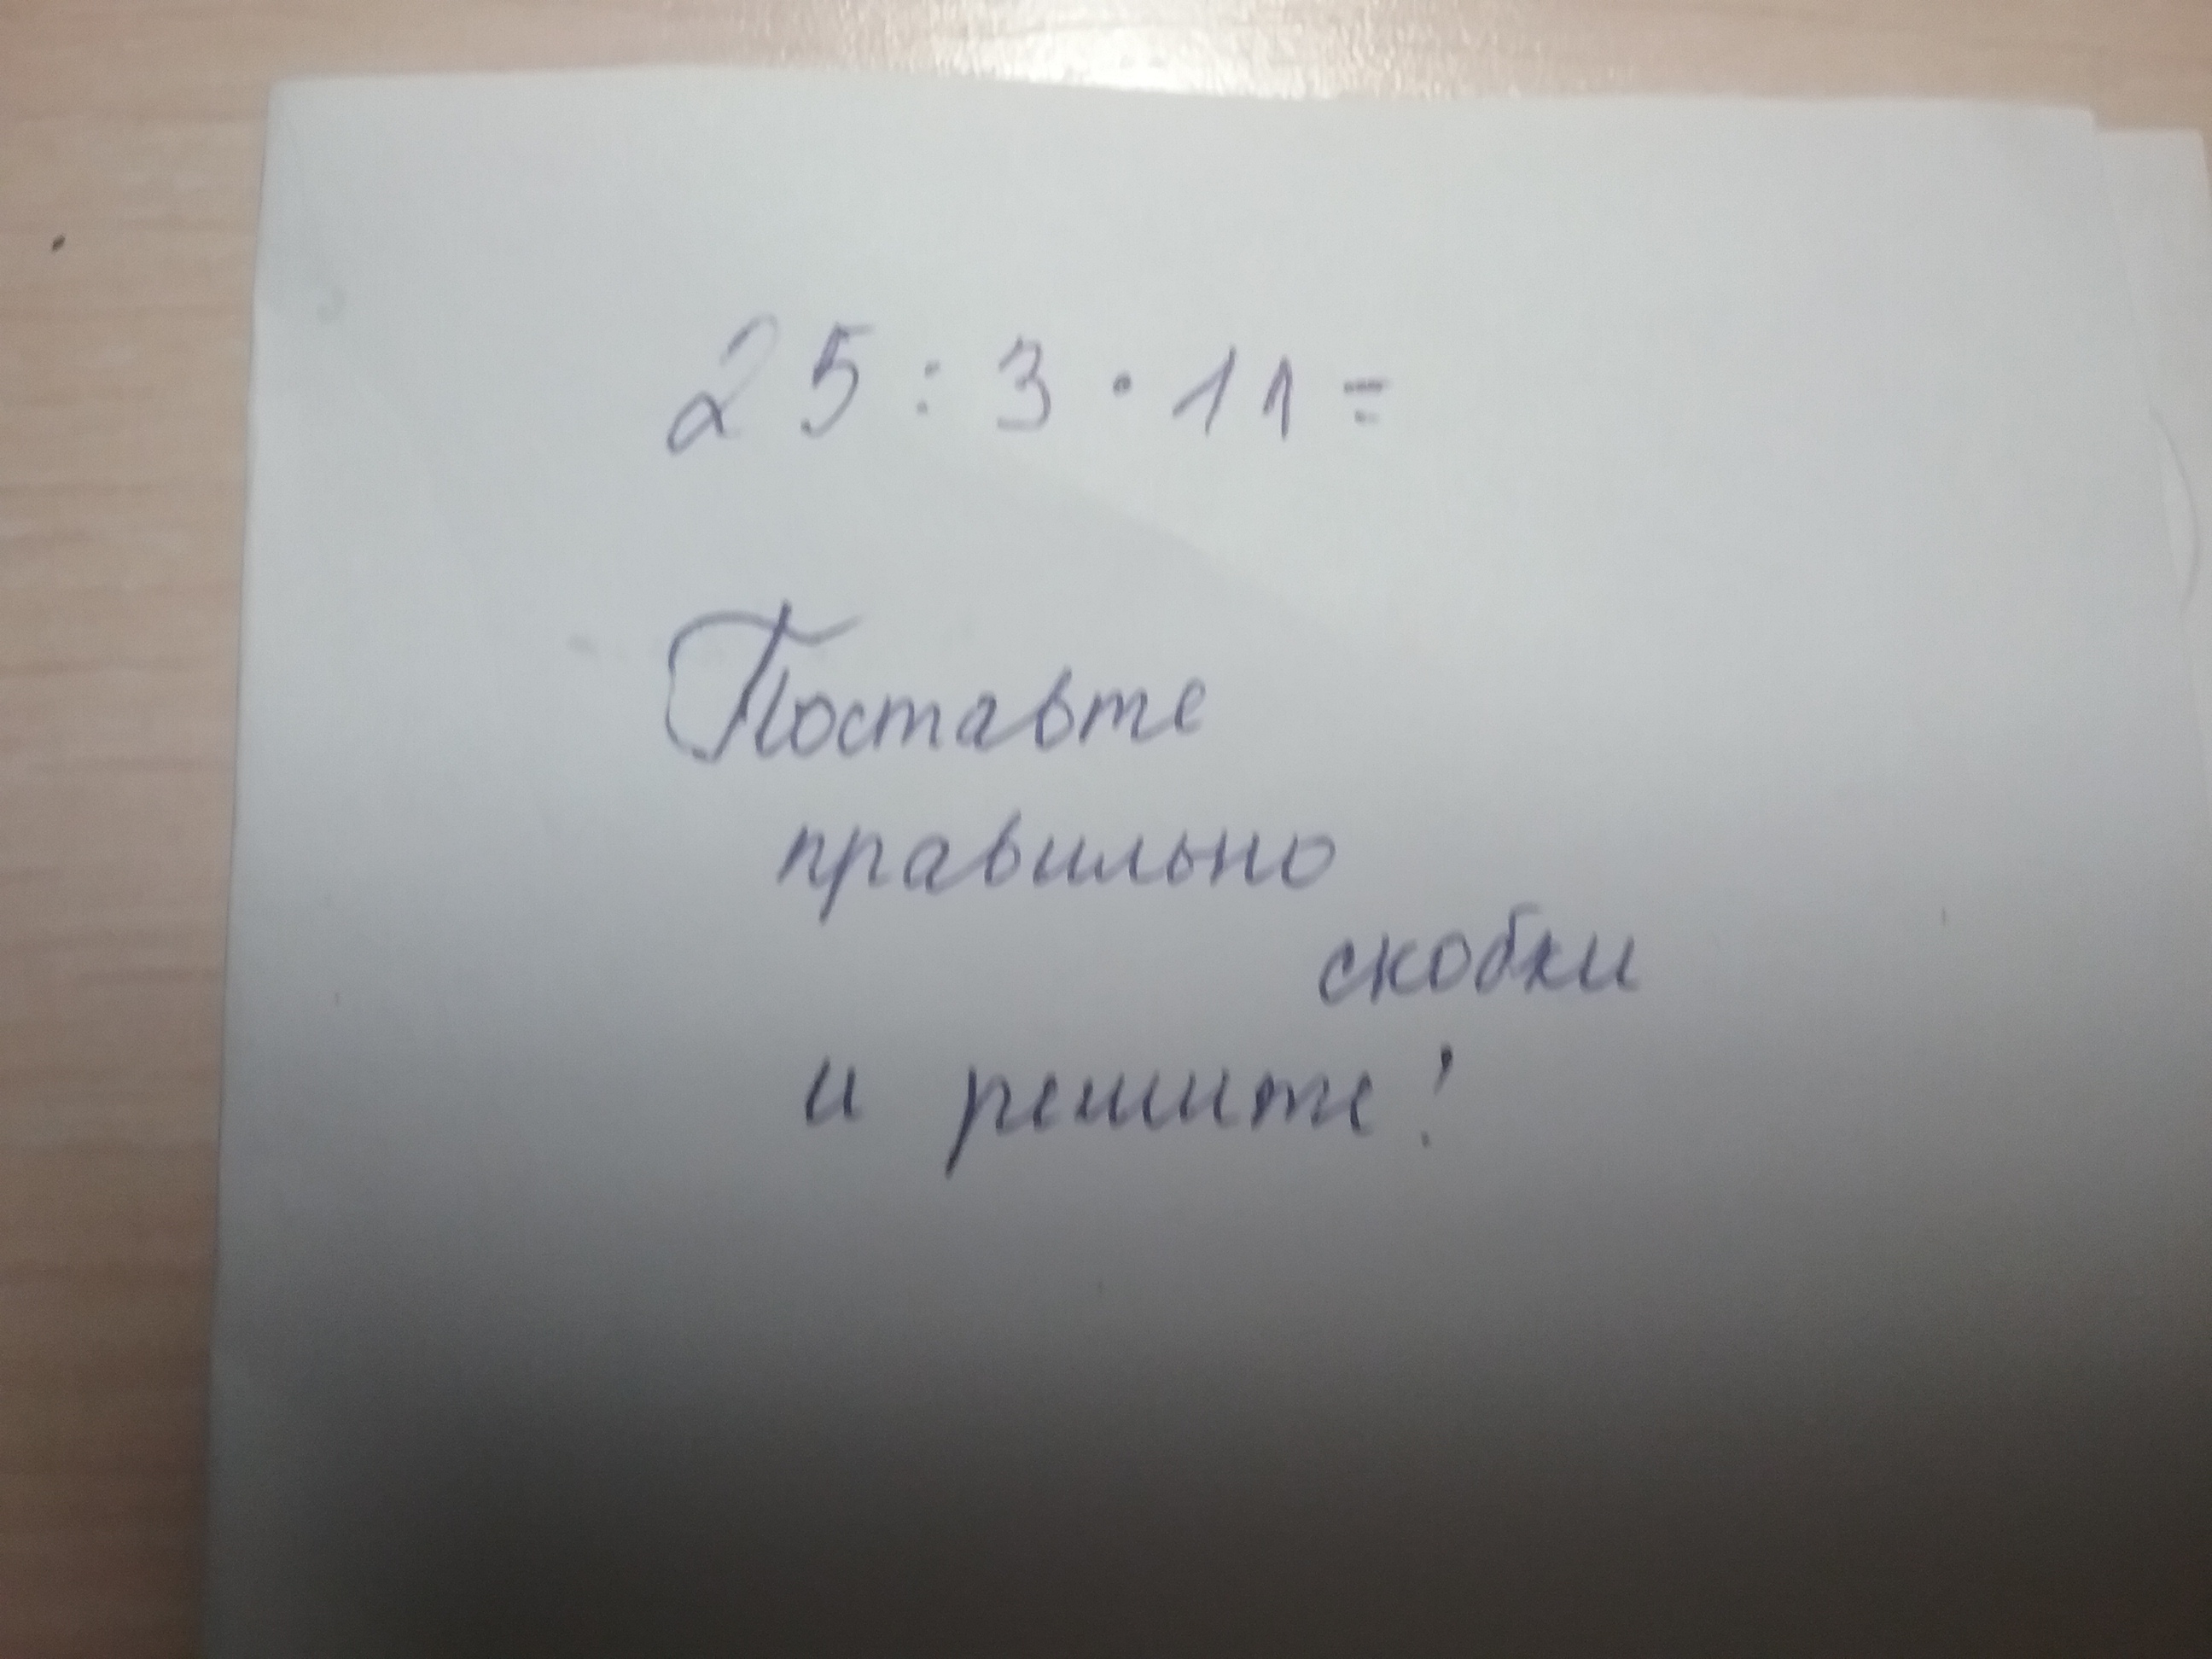 25 : 3 · 11 =
Поставте
правильно
скобки
и решите!